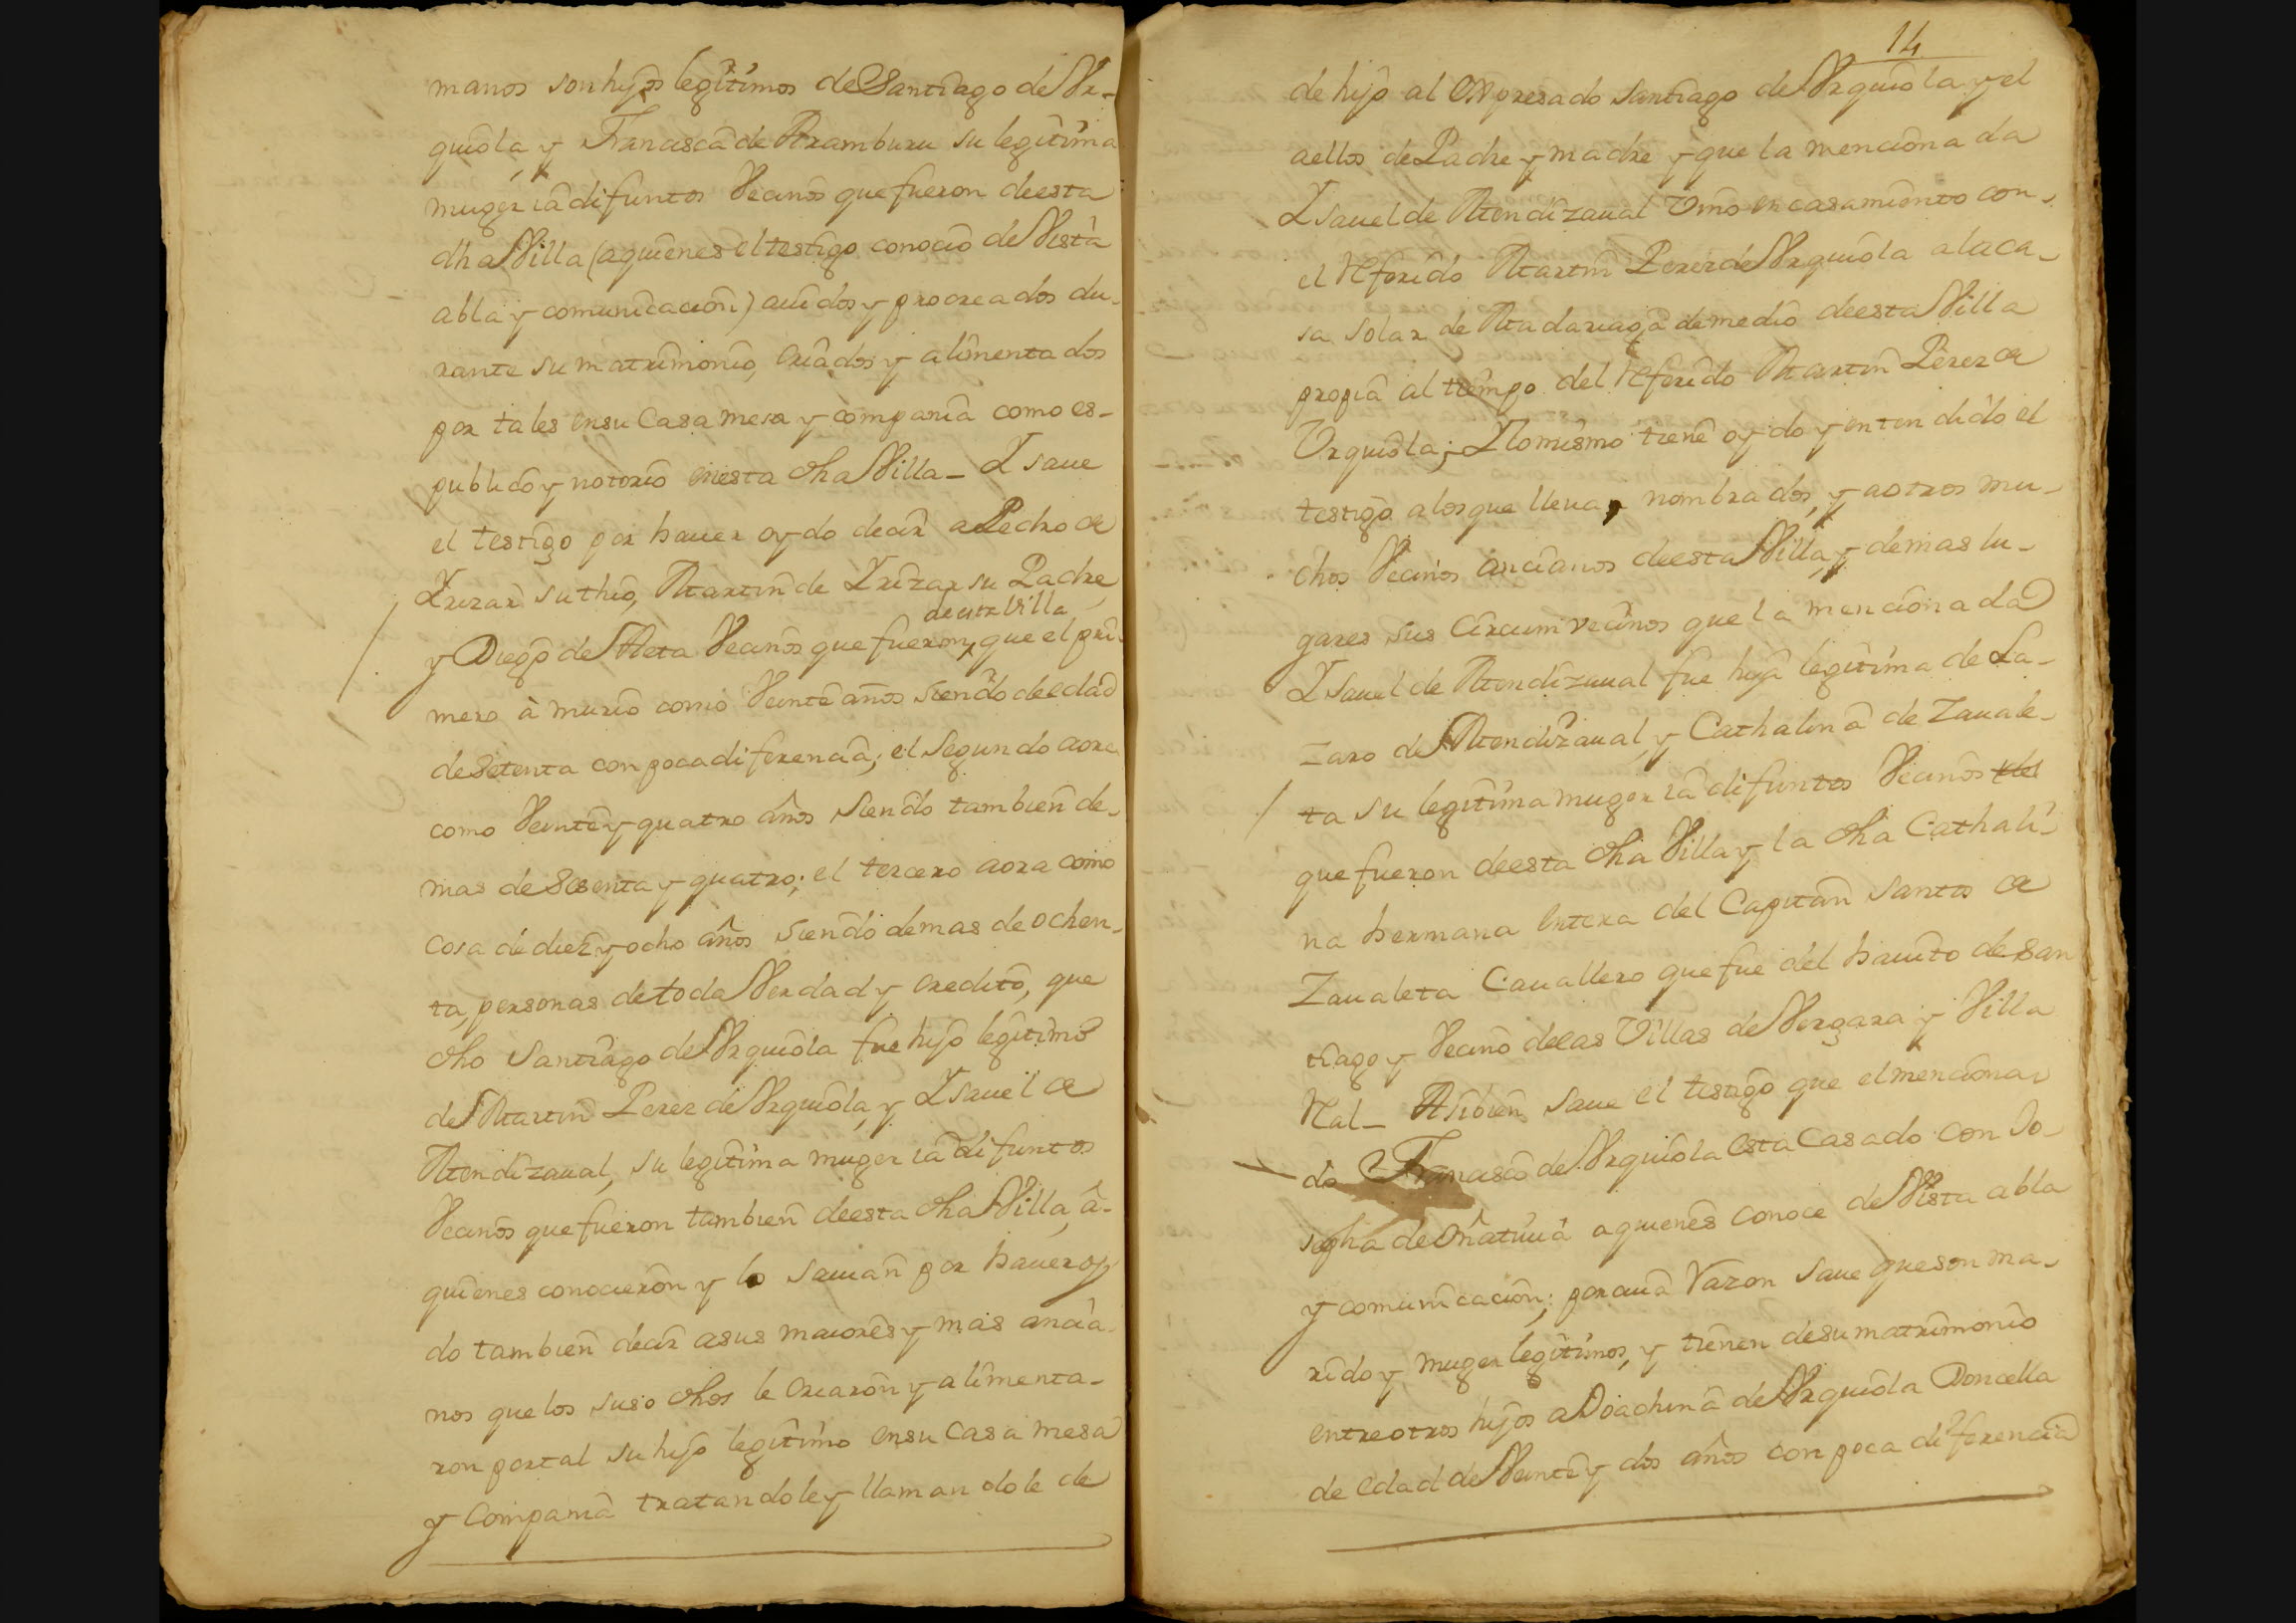 manos son hijos legitimos de Santiago de Vr-
quiola, y Francisca de Aramburu su legitima
muger ia difuntos Vecinos que fueron de esta
dha Villa (a quienes el testigo conocio de Vista
abla y comunicacion) auidos y procreados du-
rante su matrimonio, criados y alimentados
por tales en su Casa mesa y compania como es-
publico y notorio en esta dha Villa_ Y saue
el testigo por hauer oydo decir a Pedro de
Yrizar su thio, Martin de Yrizar su Padre,
de esta Villa
y Diego de Aleta Vecinos que fueron, que el pri-
mero à murio como Veinte años siendo de edad
de Setenta con poca diferencia; el Segundo aora
como Veinte y quatro años siendo tambien de-
mas de Sesenta y quatro; el tercero aora como
cosa de diez y ocho años siendo de mas de ochen-
ta, personas de toda Verdad y credito, que
dho Santiago de Vrquiola fue hijo legitimo
de Martin Perez de Vrquiola, y Ysauel de
Mendizaual, su legitima muger ia difuntos
Vecinos que fueron tambien de esta dha Villa, â-
quienes conocieron y lo sauian por hauer oy
do tambien decir a sus maiores y mas ancia-
nos que los suso dhos le criaron y alimenta-
ron por tal su hijo legitimo en su Casa mesa
y Compania tratandole y llamandole de
14
de hijo al Expresado Santiago de Vrquiola y el
a ellos de Padre y madre y que la menciona da
Ysauel de Mendizaual Vino en casamiento con-
el Referido Martin Perez de Vrquiola a la ca-
sa solar de Madariaga de medio de esta Villa
propia al tiempo del Referido Martin Perez de
Vrquiola; Y lo mismo tiene oydo y entendido el
testigo a los que lleua nombrados, y a otros mu-
chos Vecinos ancianos de esta Villa, y demas lu-
gares sus Circumvecinos que la mencionada
Ysauel de Mendizaual fue hija legitima de La-
zaro de Mendizaual, y Cathalina de Zauale-
ta su legitima muger ia difuntos Vecinos
que fueron de esta dha Villa y la dha Cathali-
na hermana Entera del Capitan Santos de
Zaualeta Cauallero que fue del hauito de San
tiago y Vecino de las Villas de Vergara y Villa
Real_ Asi bien saue el testigo que el menciona-
do Francisco de Vrquiola Esta Casado con Jo-
sepha de Oñatiuia a quienes conoce de Vista abla
y comunicacion; por cuia Razon saue que son ma-
rido y muger legitimos, y tienen de su matrimonio
entre otros hijos a Joachina de Vrquiola Doncella
de edad de Veinte y dos años con poca diferencia